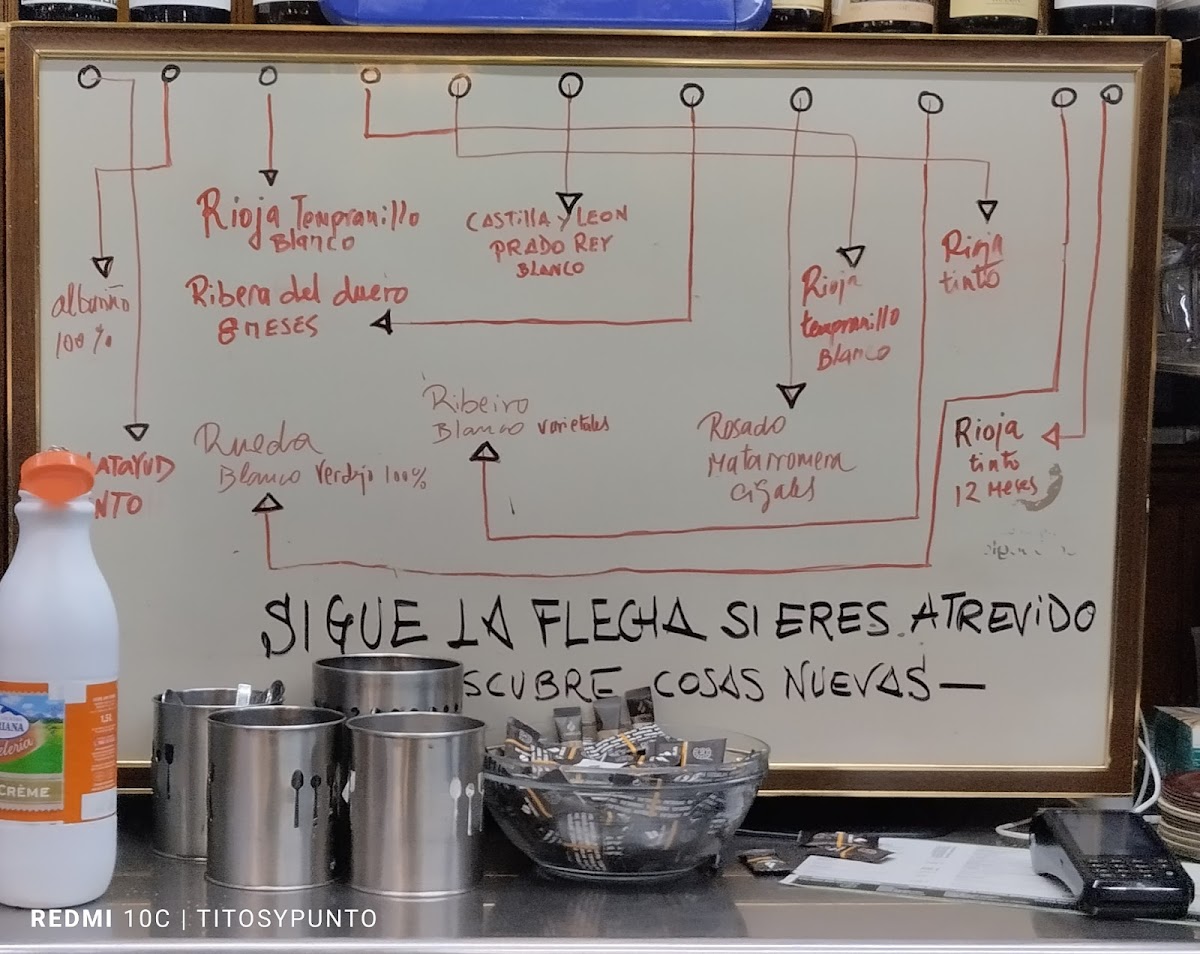 Rioja Tempranillo
Blanco
CASTILLA Y LEON
PRADO REY
BLANCO
Rioja
tinto
albariño
100%
Ribera del duero
8 MESES
Rioja
tempranillo
Blanco
Ribeiro
Blanco varietales
Rosado
Matarromera
cigales
Rioja
tinto
12 Meses
Rueda
Blanco Verdejo 100%
LATAYUD
NTO
SIGUE LA FLECHA SI ERES ATREVIDO
SCUBRE COSAS NUEVAS—
1,5L
RIANA
elería
CRÈME
REDMI 10C | TITOSYPUNTO